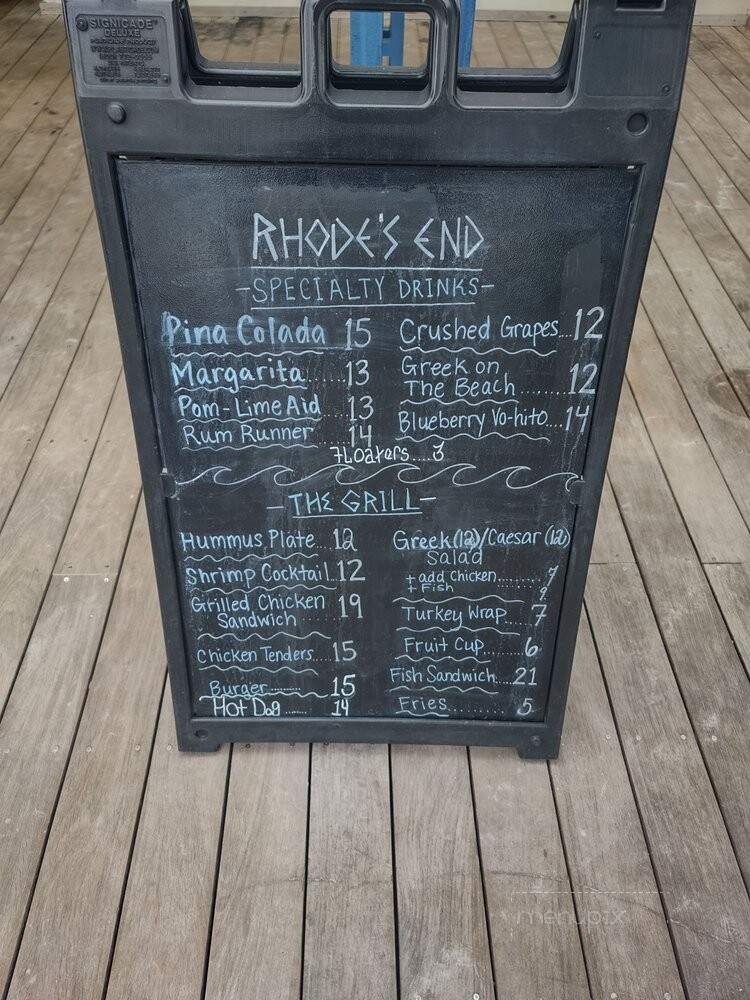 SIGNICADE
DELUXE
RHODE'S END
-SPECIALTY DRINKS-
Pina Colada 15
Margarita...... 13
Pom-LimeAid 13
Rum Runner 14
Crushed Grapes...12
Greek on
The Beach........12
Blueberry Vo-hito...14
Floaters....3
-THE GRILL-
Hummus Plate...12
Shrimp Cocktail 12
Grilled Chicken 19
Sandwich
Chicken Tenders....15
Burger.......... 15
Hot Dog ...... 14
Greek(12)/Caesar(12)
Salad
+ add Chicken........7
+ Fish 9
Turkey Wrap.....7
Fruit Cup....6
Fish Sandwich....21
Fries......... 5
menupix